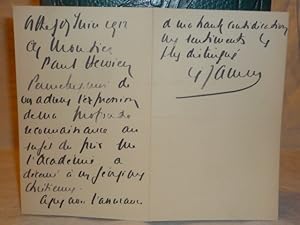 Orthez 7 Juin 1912
A Monsieur
Paul Hervieu
Permettez moi de
vous adresser l'expression
de ma profonde
reconnaissance au
sujet du prix que
l'Académie a
décerné à mes Géorgiques
Chrétiennes.
Agréez avec l'assurance
de ma haute considération
mes sentiments les
plus distingués
F Jammes